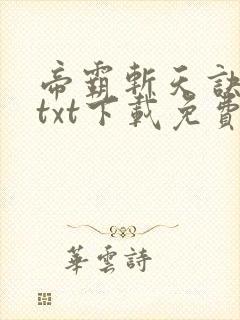 帝霸斬天訣
txt下載免費
華雲詩